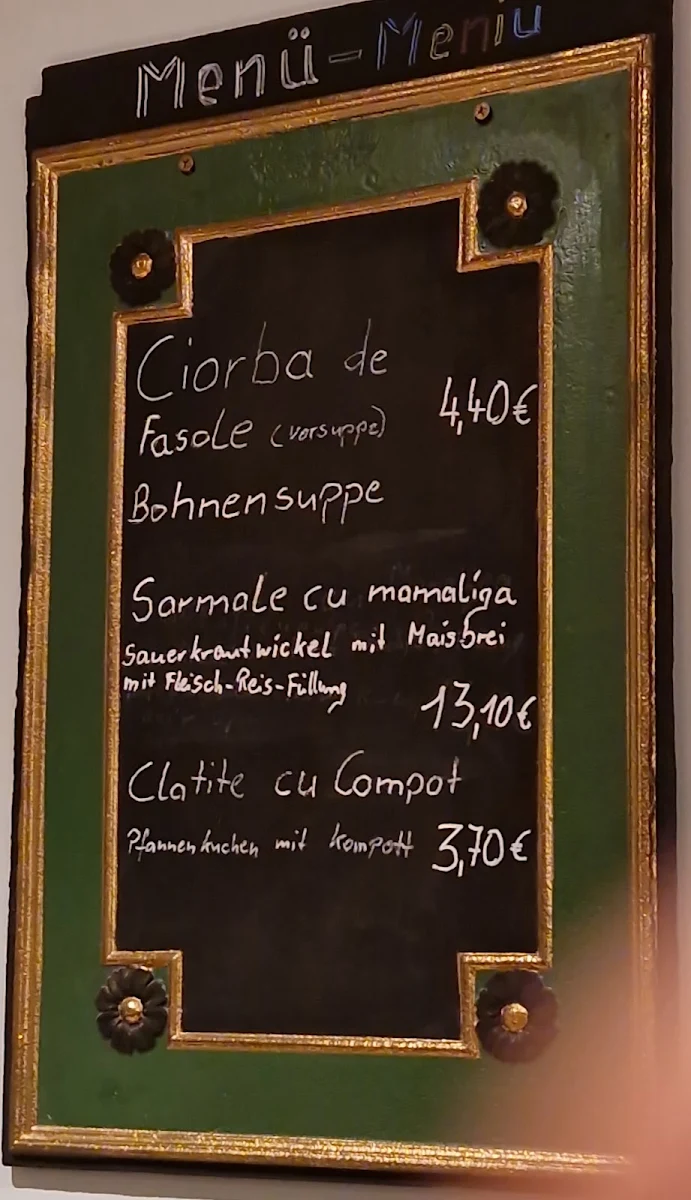 Menü-Meniu
Ciorba de
Fasole (vorsuppe)
4,40€
Bohnensuppe
Sarmale cu mamaliga
Sauerkrautwickel mit Maisbrei
mit Fleisch-Reis-Füllung
13,10€
Clatite cu Compot
Pfannenkuchen mit Kompott 3,70€